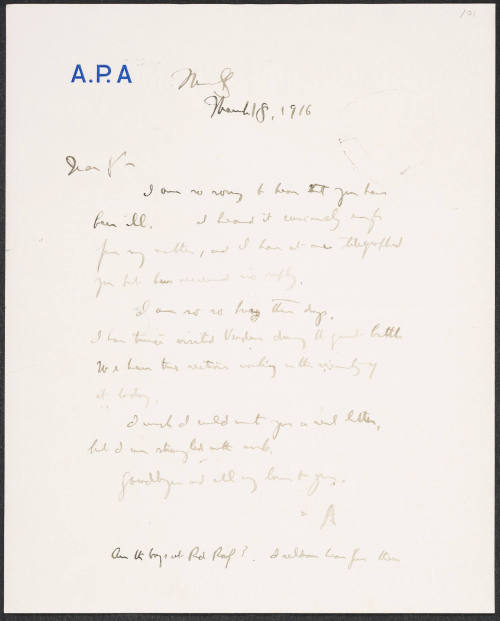 101
A.P.A
March 18, 1916
Dear V—
I am so sorry to hear that you have
been ill. I heard it curiously enough
from my mother, and I have at once telegraphed
you but have received no reply.
I am so so busy these days.
I have twice visited Verdun during the great battle
We have two sections working in the vicinity of
it today.
I wish I could write you a real letter,
but I am strangled with work.
Goodbye and all my love to you.
- A
Are the boys at Red Roof? I seldom hear from them